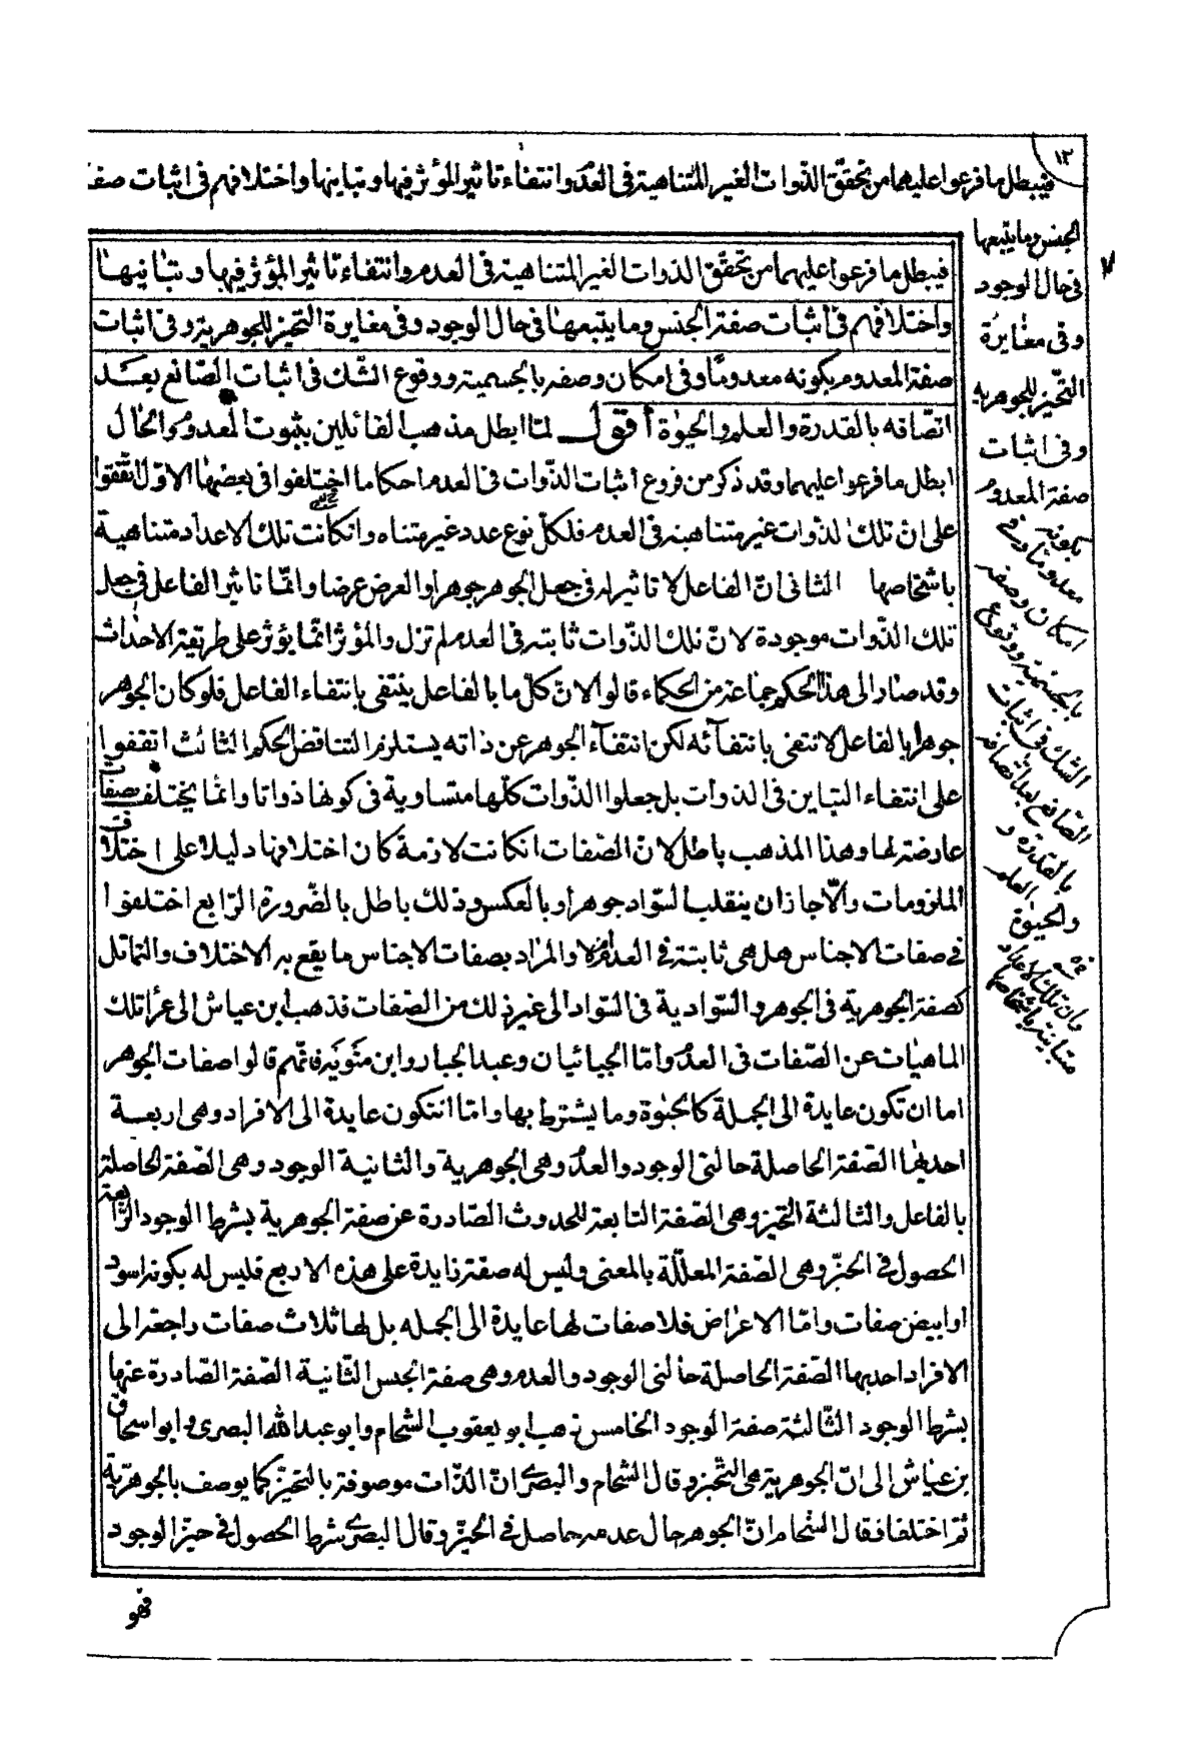 ١٢
فيبطل ما فرعوا عليهما من تحقق الذوات الغير المتناهية فى العدم وانتفاء تاثير المؤثر فيها وتباينها واختلافهم فى اثبات صفة
الجنس وما يتبعها
فى حال الوجود
وفى مغايرة
التحيز للجوهرية
وفى اثبات
صفة المعدوم
بكونه
معدوما وفى
امكان وصفه
بالجسمية ووقوع
الشك فى اثبات
الصانع بعد اتصافه
بالقدرة و
العلم
والحيوة
وان تلك الاعداد
متباينة باشخاصها
فيبطل ما فرعوا عليهما من تحقق الذوات الغير المتناهية فى العدم وانتفاء تاثير المؤثر فيها وتباينها
واختلافهم فى اثبات صفة الجنس وما يتبعها فى حال الوجود وفى مغايرة التحيز للجوهرية وفى اثبات
صفة المعدوم بكونه معدوما وفى امكان وصفه بالجسمية ووقوع الشك فى اثبات الصانع بعد
اتصافه بالقدرة والعلم والحيوة أقول لما ابطل مذهب القائلين بثبوت المعدوم والحال
ابطل ما فرعوا عليهما وقد ذكر من فروع اثبات الذوات فى العدم احكاما اختلفوا فى بعضها الاول اتفقوا
على ان تلك الذوات غير متناهية فى العدم فلكل نوع عدد غير متناه وان كانت تلك الاعداد متناهية
باشخاصها الثانى ان الفاعل لا تاثير له فى جعل الجوهر جوهرا والعرض عرضا وانما تاثير الفاعل فى جعل
تلك الذوات موجودة لان تلك الذوات ثابته فى العدم لم تزل والمؤثر انما يؤثر على طريقة الاحداث
وقد صار الى هذا الحكم جماعة من الحكماء قالوا لان كل ما بالفاعل ينتفى بانتفاء الفاعل فلو كان الجوهر
جوهرا بالفاعل لانتفى بانتفائه لكن انتفاء الجوهر عن ذاته يستلزم التناقض الحكم الثالث اتفقوا
على انتفاء التباين فى الذوات بل جعلوا الذوات كلها متساوية فى كونها ذواتا وانما يختلف بصفات
عارضة لها وهذا المذهب باطل لان الصفات ان كانت لازمة كان اختلافها دليلا على اختلاف
الملزومات والا جاز ان ينقلب السواد جوهرا وبالعكس وذلك باطل بالضرورة الرابع اختلفوا
فى صفات الاجناس هل هى ثابتة فى العدم ام لا والمراد بصفات الاجناس ما يقع به الاختلاف والتماثل
كصفة الجوهرية فى الجوهر والسوادية فى السواد الى غير ذلك من الصفات فذهب ابن عياش الى عراء تلك
الماهيات عن الصفات فى العدم واما الجبائيان وعبد الجبار وابن متويه فانهم قالوا صفات الجوهر
اما ان تكون عايدة الى الجملة كالحيوة وما يشترط بها واما ان تكون عايدة الى الافراد وهى اربعة
احديها الصفة الحاصلة حالتى الوجود والعدم وهى الجوهرية والثانية الوجود وهى الصفة الحاصلة
بالفاعل والثالثة التحيز وهى الصفة التابعة للحدوث الصادرة عن صفة الجوهرية بشرط الوجود الرابعة
الحصول فى الحيز وهى الصفة المعللة بالمعنى وليس له صفة زايدة على هذه الاربع فليس له بكونه اسود
او ابيض صفات واما الاعراض فلا صفات لها عايدة الى الجمله بل لها ثلاث صفات راجعة الى
الافراد احديها الصفة الحاصلة حالتى الوجود والعدم وهى صفة الجنس الثانية الصفة الصادرة عنها
بشرط الوجود الثالثة صفة الوجود الخامس ذهب ابو يعقوب الشحام وابو عبد الله البصرى وابو اسحاق
بن عياش الى ان الجوهرية هى التحيز وقال الشحام والبصرى ان الذات موصوفة بالتحيز كما يوصف بالجوهرية
ثم اختلفا فقال الشحام ان الجوهر حال عدمه حاصل فى الحيز وقال البصرى شرط الحصول فى حيز الوجود
فهو